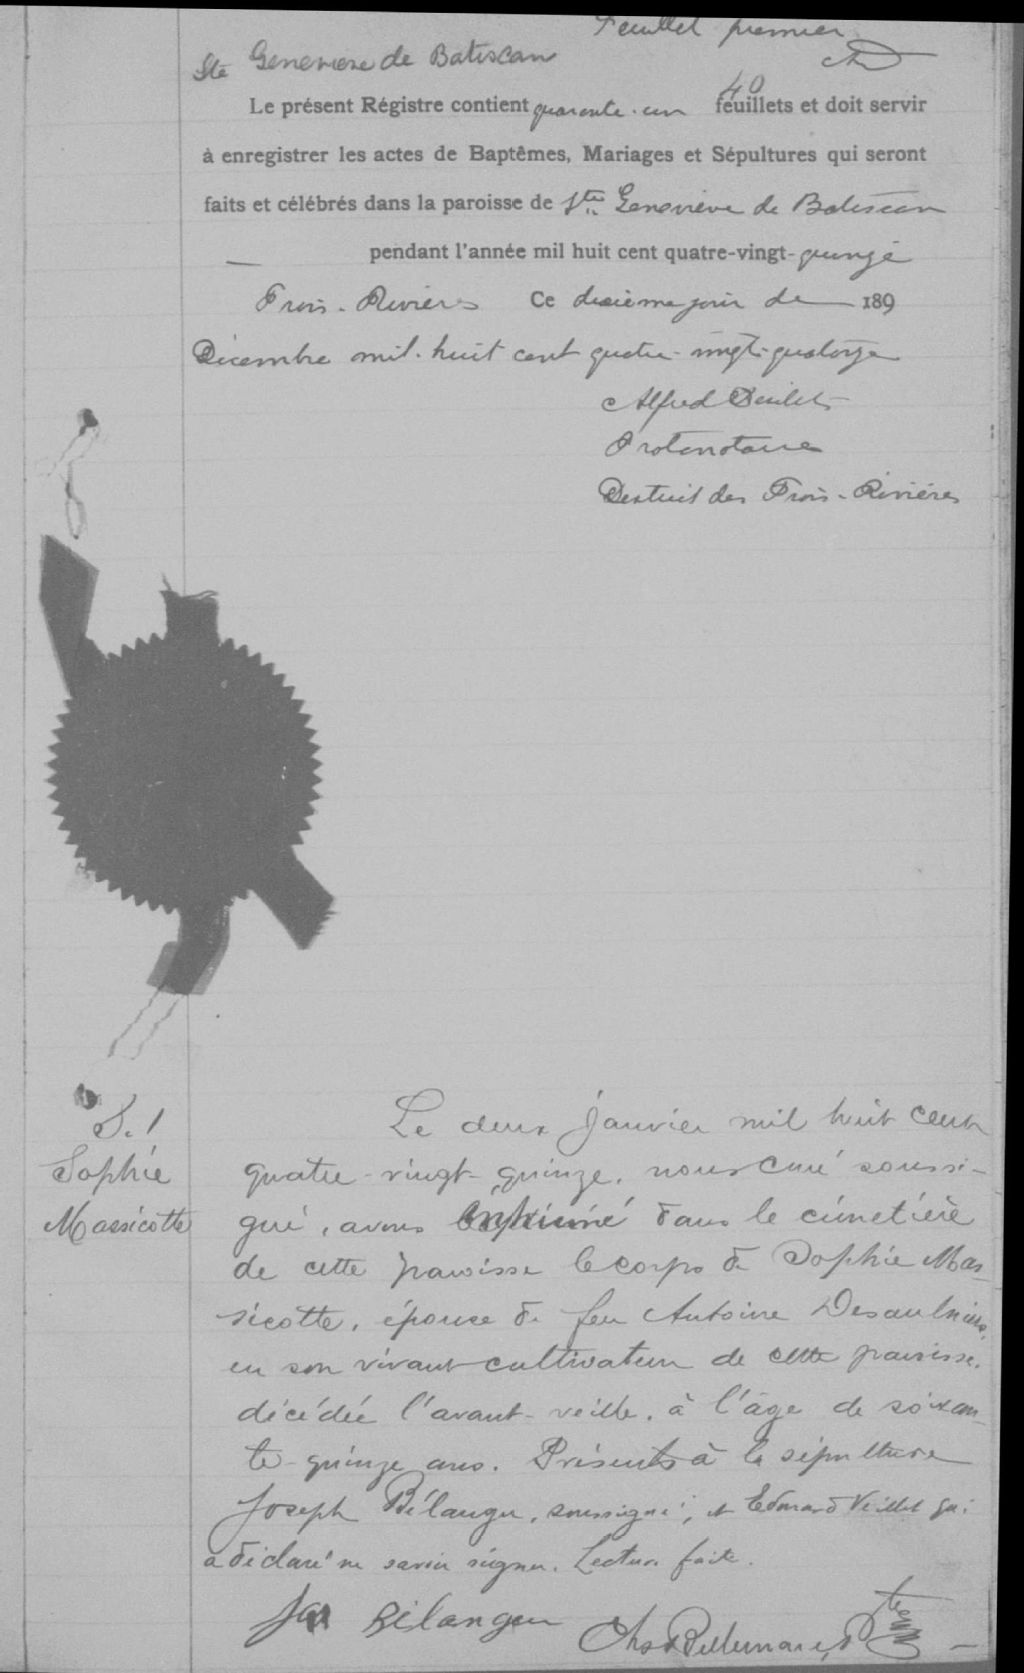 Feuillet premier
Ste Geneviève de Batiscan
AD
40
Le présent Régistre contient quarante-un feuillets et doit servir
à enregistrer les actes de Baptêmes, Mariages et Sépultures qui seront
faits et célébrés dans la paroisse de Ste Geneviève de Batiscan
pendant l'année mil huit cent quatre-vingt-quinze
Trois-Rivières Ce dixième jour de 189
Décembre mil-huit cent quatre-vingt-quatorze
Alfred Désilets
Protonotaire
District des Trois-Rivières
S. 1
Sophie
Massicotte
Le deux janvier mil huit cent
quatre-vingt-quinze, nous curé soussi-
gné, avons inhumé dans le cimetière
de cette paroisse le corps de Sophie Mas-
sicotte, épouse de feu Antoine Desaulniers,
en son vivant cultivateur de cette paroisse,
décédée l'avant-veille, à l'âge de soixan-
te-quinze ans. Présents à la sépulture
Joseph Bélanger, soussigné, et Edouard Veillet qui
a déclaré ne savoir signer. Lecture faite.
Jos Bélanger
Chs Bellemare, Ptre